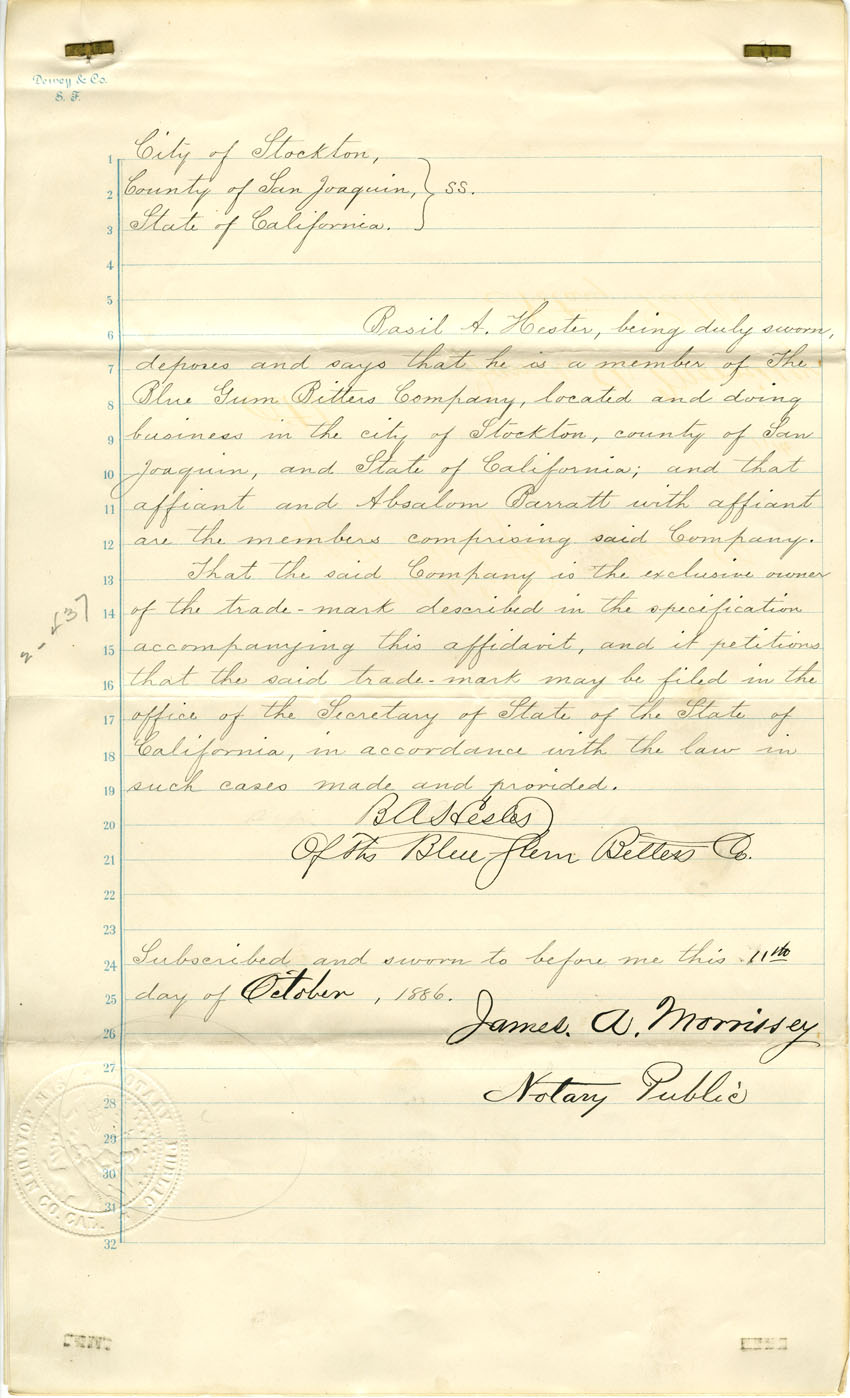 Dewey & Co.
S. F.
1 City of Stockton,
2 County of San Joaquin, } ss.
3 State of California.
4
5
6 Basil A. Hester, being duly sworn,
7 deposes and says that he is a member of The
8 Blue Gum Bitters Company, located and doing
9 business in the city of Stockton, county of San
10 Joaquin, and State of California; and that
11 affiant and Absalom Barratt with affiant
12 are the members comprising said Company.
13 That the said Company is the exclusive owner
14 of the trade-mark described in the specification
15 accompanying this affidavit, and it petitions
16 that the said trade-mark may be filed in the
17 office of the Secretary of State of the State of
18 California, in accordance with the law in
19 such cases made and provided.
20 B A Hester
21 Of The Blue Gum Bitters Co.
22
23
24 Subscribed and sworn to before me this 11th
25 day of October, 1886.
26 James. A. Morrissey
27
28 Notary Public
29
30
31
32
NOTARY PUBLIC
CO. CAL.